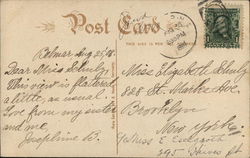 Post Card
THIS SIDE IS FOR
Belmar Aug 25, '08.
Dear Miss Schultz,
This view is flattered
a little, as usual.
Love from my sister
and me,
Josephine B.
Miss Elizabeth Schultz
828 St. Marks Ave
Brooklyn
New York
c/o Miss E
295